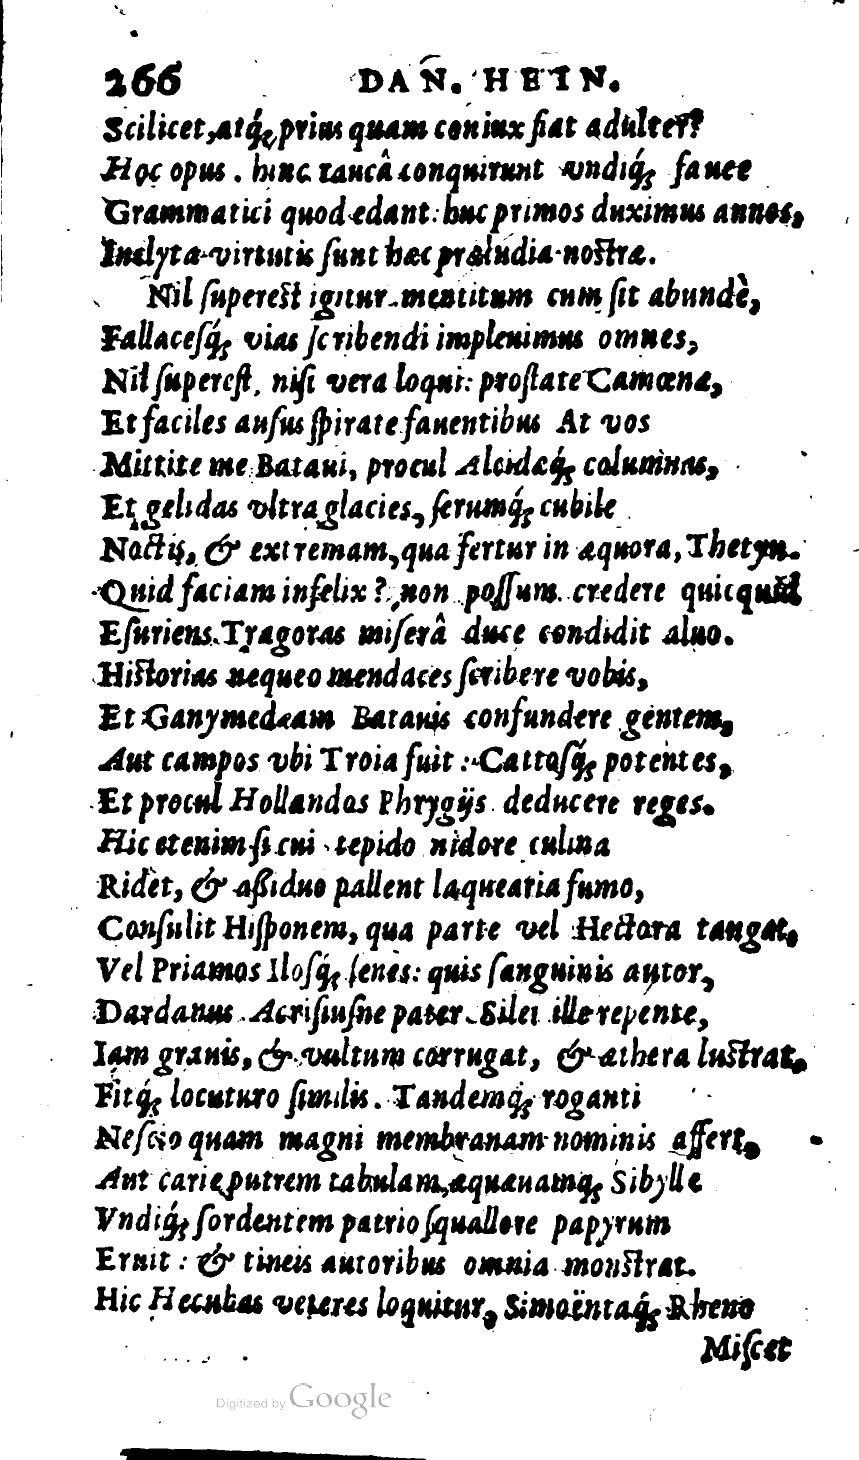 266 DAN. HEIN.
Scilicet, atq́; prius quam coniux fiat adulter?
Hoc opus. hinc raucâ conquirunt vndiq́; fauce
Grammatici quod edant: huc primos duximus annos,
Inclyta virtutis ſunt hæc præludia noſtræ.
Nil ſupereſt igitur mentitum cum ſit abundè,
Fallaceſq́; vias ſcribendi impleuimus omnes,
Nil ſupereſt, niſi vera loqui: proſtate Camœnæ,
Et faciles auſus ſpirate fauentibus At vos
Mittite me Bataui, procul Alcidæq́; columnas,
Et gelidas vltra glacies, ferumq́; cubile
Noctis, & extremam, qua fertur in æquora, Thetyn.
Quid faciam infelix? non poſſum credere quicquid
Eſuriens Tragoras miſerâ duce condidit aluo.
Hiſtorias nequeo mendaces ſcribere vobis,
Et Ganymedæam Batauis confundere gentem,
Aut campos vbi Troia fuit: Cattoſq́; potentes,
Et procul Hollandos Phrygijs deducere reges.
Hic etenim ſi cui tepido nidore culina
Ridet, & aſſiduo pallent laquearia fumo,
Conſulit Hiſponem, qua parte vel Hectora tangat,
Vel Priamos Iloſq́; ſenes: quis ſanguinis autor,
Dardanus Acriſiuſne pater. Silet ille repente,
Iam grauis, & vultum corrugat, & æthera luſtrat,
Fitq́; locuturo ſimilis. Tandemq́; roganti
Neſcio quam magni membranam nominis affert,
Aut carie putrem tabulam, æquæuamq; Sibyllæ
Vndiq́; ſordentem patrio ſquallore papyrum
Eruit: & tineis autoribus omnia monſtrat.
Hic Hecubas veteres loquitur, Simoëntaq́; Rheno
Miſcet
Digitized by Google